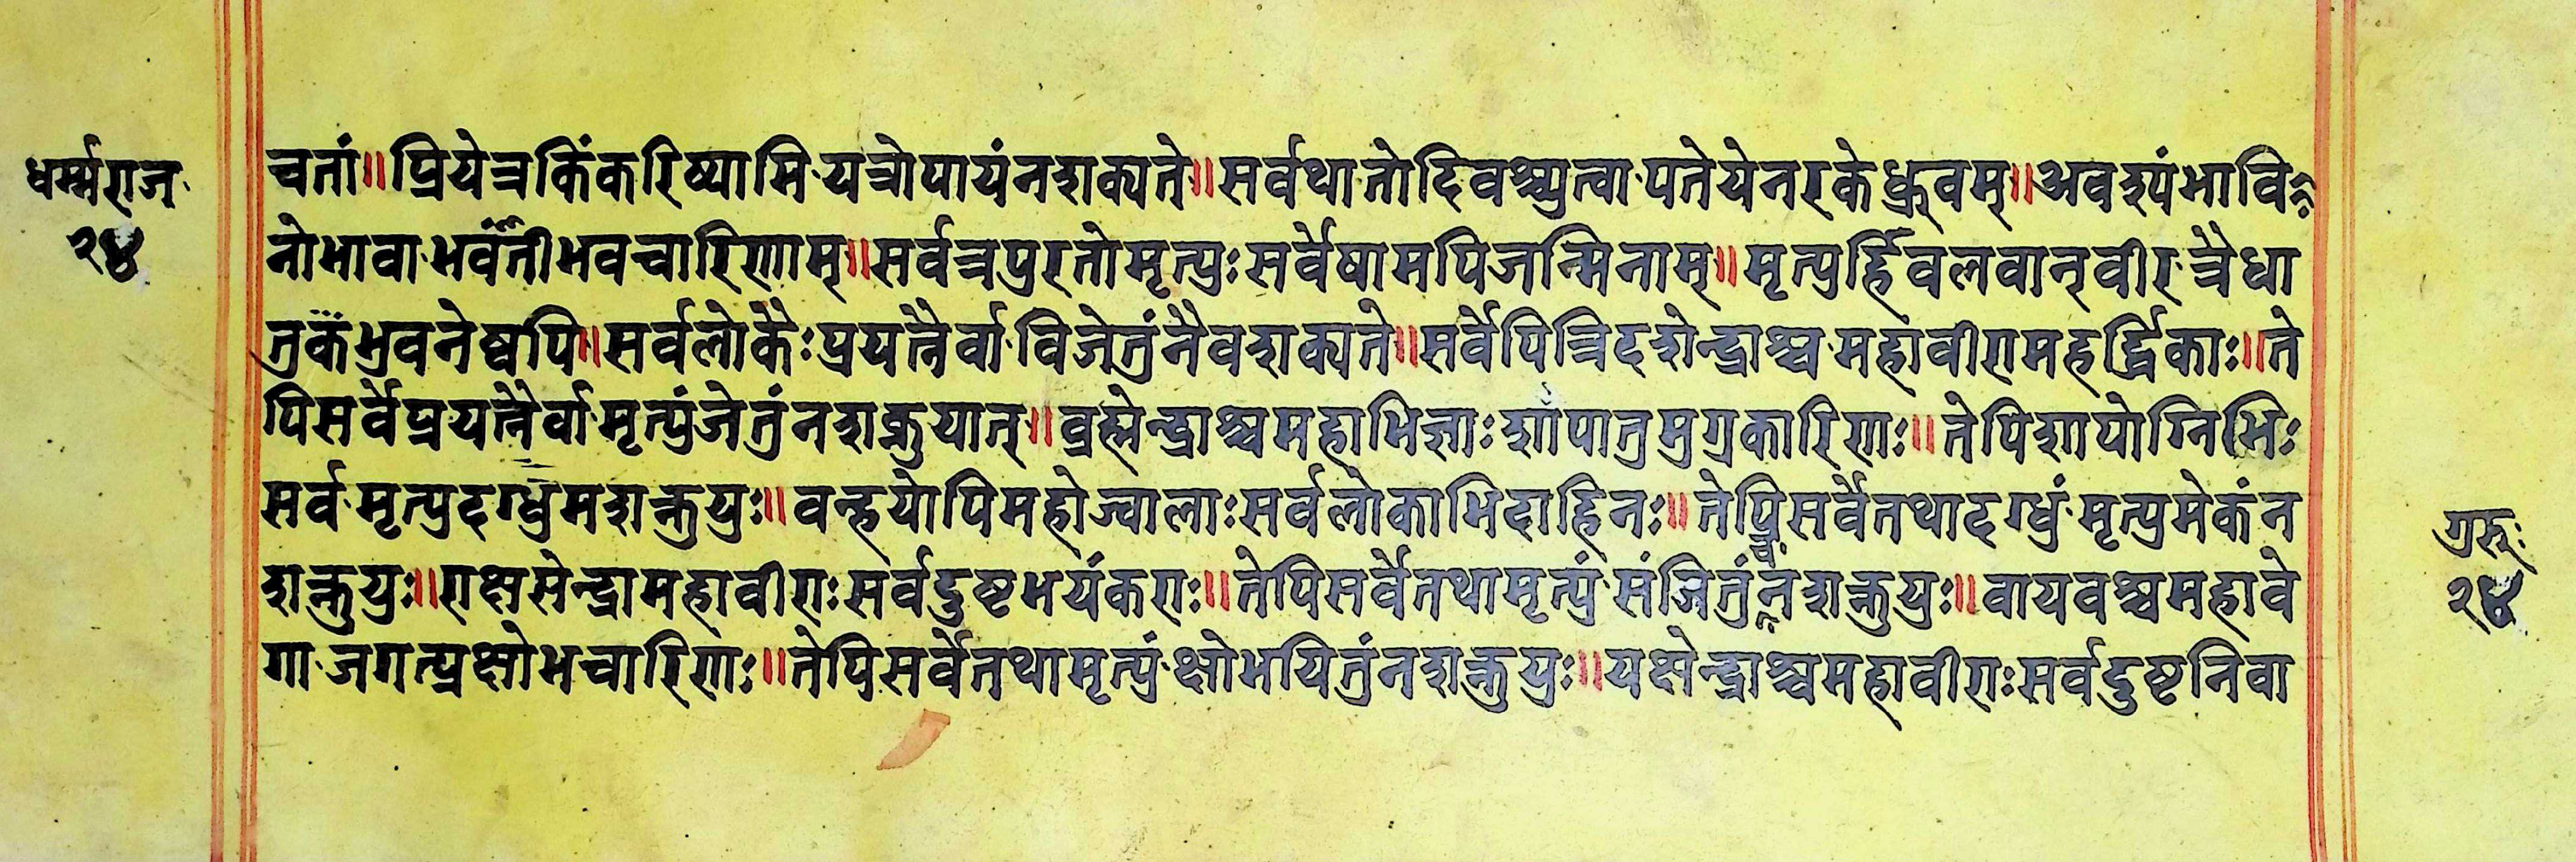 धर्म्मराज
२४
च्चतां॥प्रियेत्रकिंकरिष्यामि·यत्रोपायंनशक्यते॥सर्वथातोदिवश्च्युत्वा·पतेयेनरकेध्रुवम्॥अवश्यंभावि
नोभावा·भवंतीभवचारिणाम्॥सर्वत्रपुरतोमृत्युःसर्वेषामपिजन्मिनाम्॥मृत्युर्हिवलवान्वीर·त्रैधा
तुकंभुवनेष्वपि॥सर्वलोकैःप्रयत्नैर्वा·विजेतुंनैवशक्यते॥सर्वेपित्रिदशेन्द्राश्च·महावीरामहर्द्धिकाः॥ते
पिसर्वेप्रयत्नैर्वा·मृत्युंजेतुंनशक्नुयात्॥व्रह्मेन्द्राश्चमहाभिज्ञाःशापातुमुग्रकारिणः॥तेपिशापोग्निभिः
सर्व·मृत्युदग्धुमशक्नुयुः॥वन्हयोपिमहोज्वालाःसर्वलोकाभिदाहिनः॥तेपिसर्वेतथादग्धुं·मृत्युमेकंन
शक्नुयुः॥राक्षसेन्द्रामहावीराःसर्वदुष्टभयंकराः॥तेपिसर्वेतथामृत्युं·संजितुंनशक्नुयुः॥वायवश्चमहावे
गा·जगत्प्रक्षोभचारिणः॥तेपिसर्वेतथामृत्युं·क्षोभयितुंनशक्नुयुः॥यक्षेन्द्राश्चमहावीराःसर्वदुष्टनिवा
गुरुः
२४